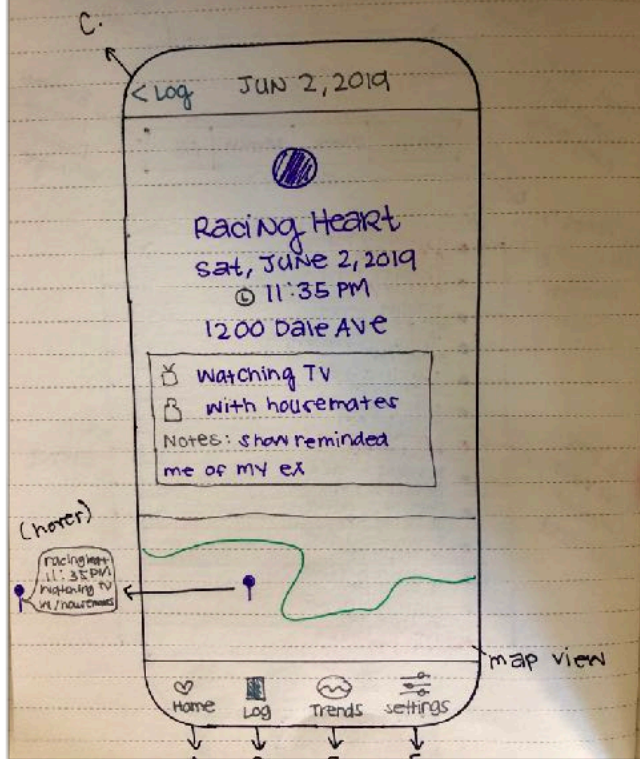 C.
< Log JUN 2, 2019
Racing Heart
Sat, June 2, 2019
11:35 PM
1200 Dale Ave
Watching TV
with housemates
Notes: show reminded
me of my ex
(hover)
racing heart
11:35 PM
watching TV
w/housemates
map view
Home Log Trends settings